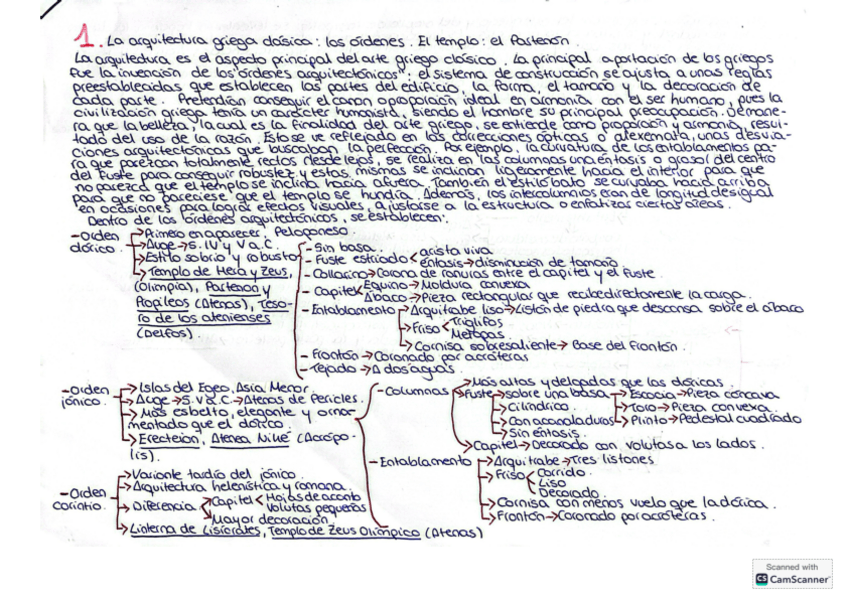 1. La arquitectura griega clásica: los órdenes. El templo: el Partenón.
La arquitectura es el aspecto principal del arte griego clásico. La principal aportación de los griegos
fue la invención de los "órdenes arquitectónicos": el sistema de construcción se ajusta a unas reglas
preestablecidas que establecen las partes del edificio, la forma, el tamaño y la decoración de
cada parte. Pretendían conseguir el canon o proporción ideal en armonía con el ser humano, pues la
civilización griega tenía un carácter humanista, siendo el hombre su principal preocupación. De mane-
ra que la belleza, la cual es la finalidad del arte griego, se entiende como proporción y armonía, resul-
tado del uso de la razón. Esto se ve reflejado en las correcciones ópticas o alexemata, unas desvia-
ciones arquitectónicas que buscaban la perfección. Por ejemplo, la curvatura de los entablamentos pa-
ra que parezcan totalmente rectos desde lejos, se realiza en las columnas una éntasis o grosor del centro
del fuste para conseguir robustez y estas mismas se inclinan ligeramente hacia el interior para que
no parezca que el templo se inclina hacia afuera. También el estilobato se curvaba hacia arriba
para que no pareciese que el templo se hundía. Además, los intercolumnios eran de longitud desigual
en ocasiones para lograr efectos visuales, ajustarse a la estructura o enfatizar ciertas áreas.
Dentro de los órdenes arquitectónicos, se establecen:
-Orden dórico → Primero en aparecer, Peloponeso.
→ Auge → S. IV y V a.C.
→ Estilo sobrio y robusto
→ Templo de Hera y Zeus,
(Olimpia), Partenón y
Propileos (Atenas), Teso-
ro de los atenienses
(Delfos).
- Sin basa.
- Fuste estriado < arista viva
éntasis → disminución de tamaño
- Collarino → Corona de ranuras entre el capitel y el fuste.
- Capitel < Equino → Moldura convexa
Ábaco → Pieza rectangular que recibe directamente la carga.
- Entablamento → Arquitrabe liso → Listón de piedra que descansa sobre el ábaco
→ Friso < Triglifos
Metopas
→ Cornisa sobresaliente → Base del frontón.
- Frontón → Coronado por acróteras
- Tejado → A dos aguas
-Orden jónico → Islas del Egeo, Asia Menor.
→ Auge → S. V a.C. → Atenas de Pericles.
→ Más esbelto, elegante y orna-
mentado que el dórico.
→ Erecteion, Atenea Niké (Acrópo-
lis).
-Orden corintio → Variante tardía del jónico.
→ Arquitectura helenística y romana.
→ Diferencia → Capitel < Hojas de acanto
Volutas pequeñas
Mayor decoración
→ Linterna de Lisícrates, Templo de Zeus Olímpico (Atenas)
- Columnas → Más altas y delgadas que las dóricas.
→ Fuste → sobre una basa → Escocia → Pieza cóncava
→ Toro → Pieza convexa.
→ Plinto → Pedestal cuadrado
→ Cilíndrico.
→ Con acanaladuras
→ Sin éntasis.
→ Capitel → Decorado con volutas a los lados.
- Entablamento → Arquitrabe → Tres listones
→ Friso < Corrido.
Liso
Decorado.
→ Cornisa con menos vuelo que la dórica.
→ Frontón → Coronado por acróteras.
Scanned with
CS CamScanner